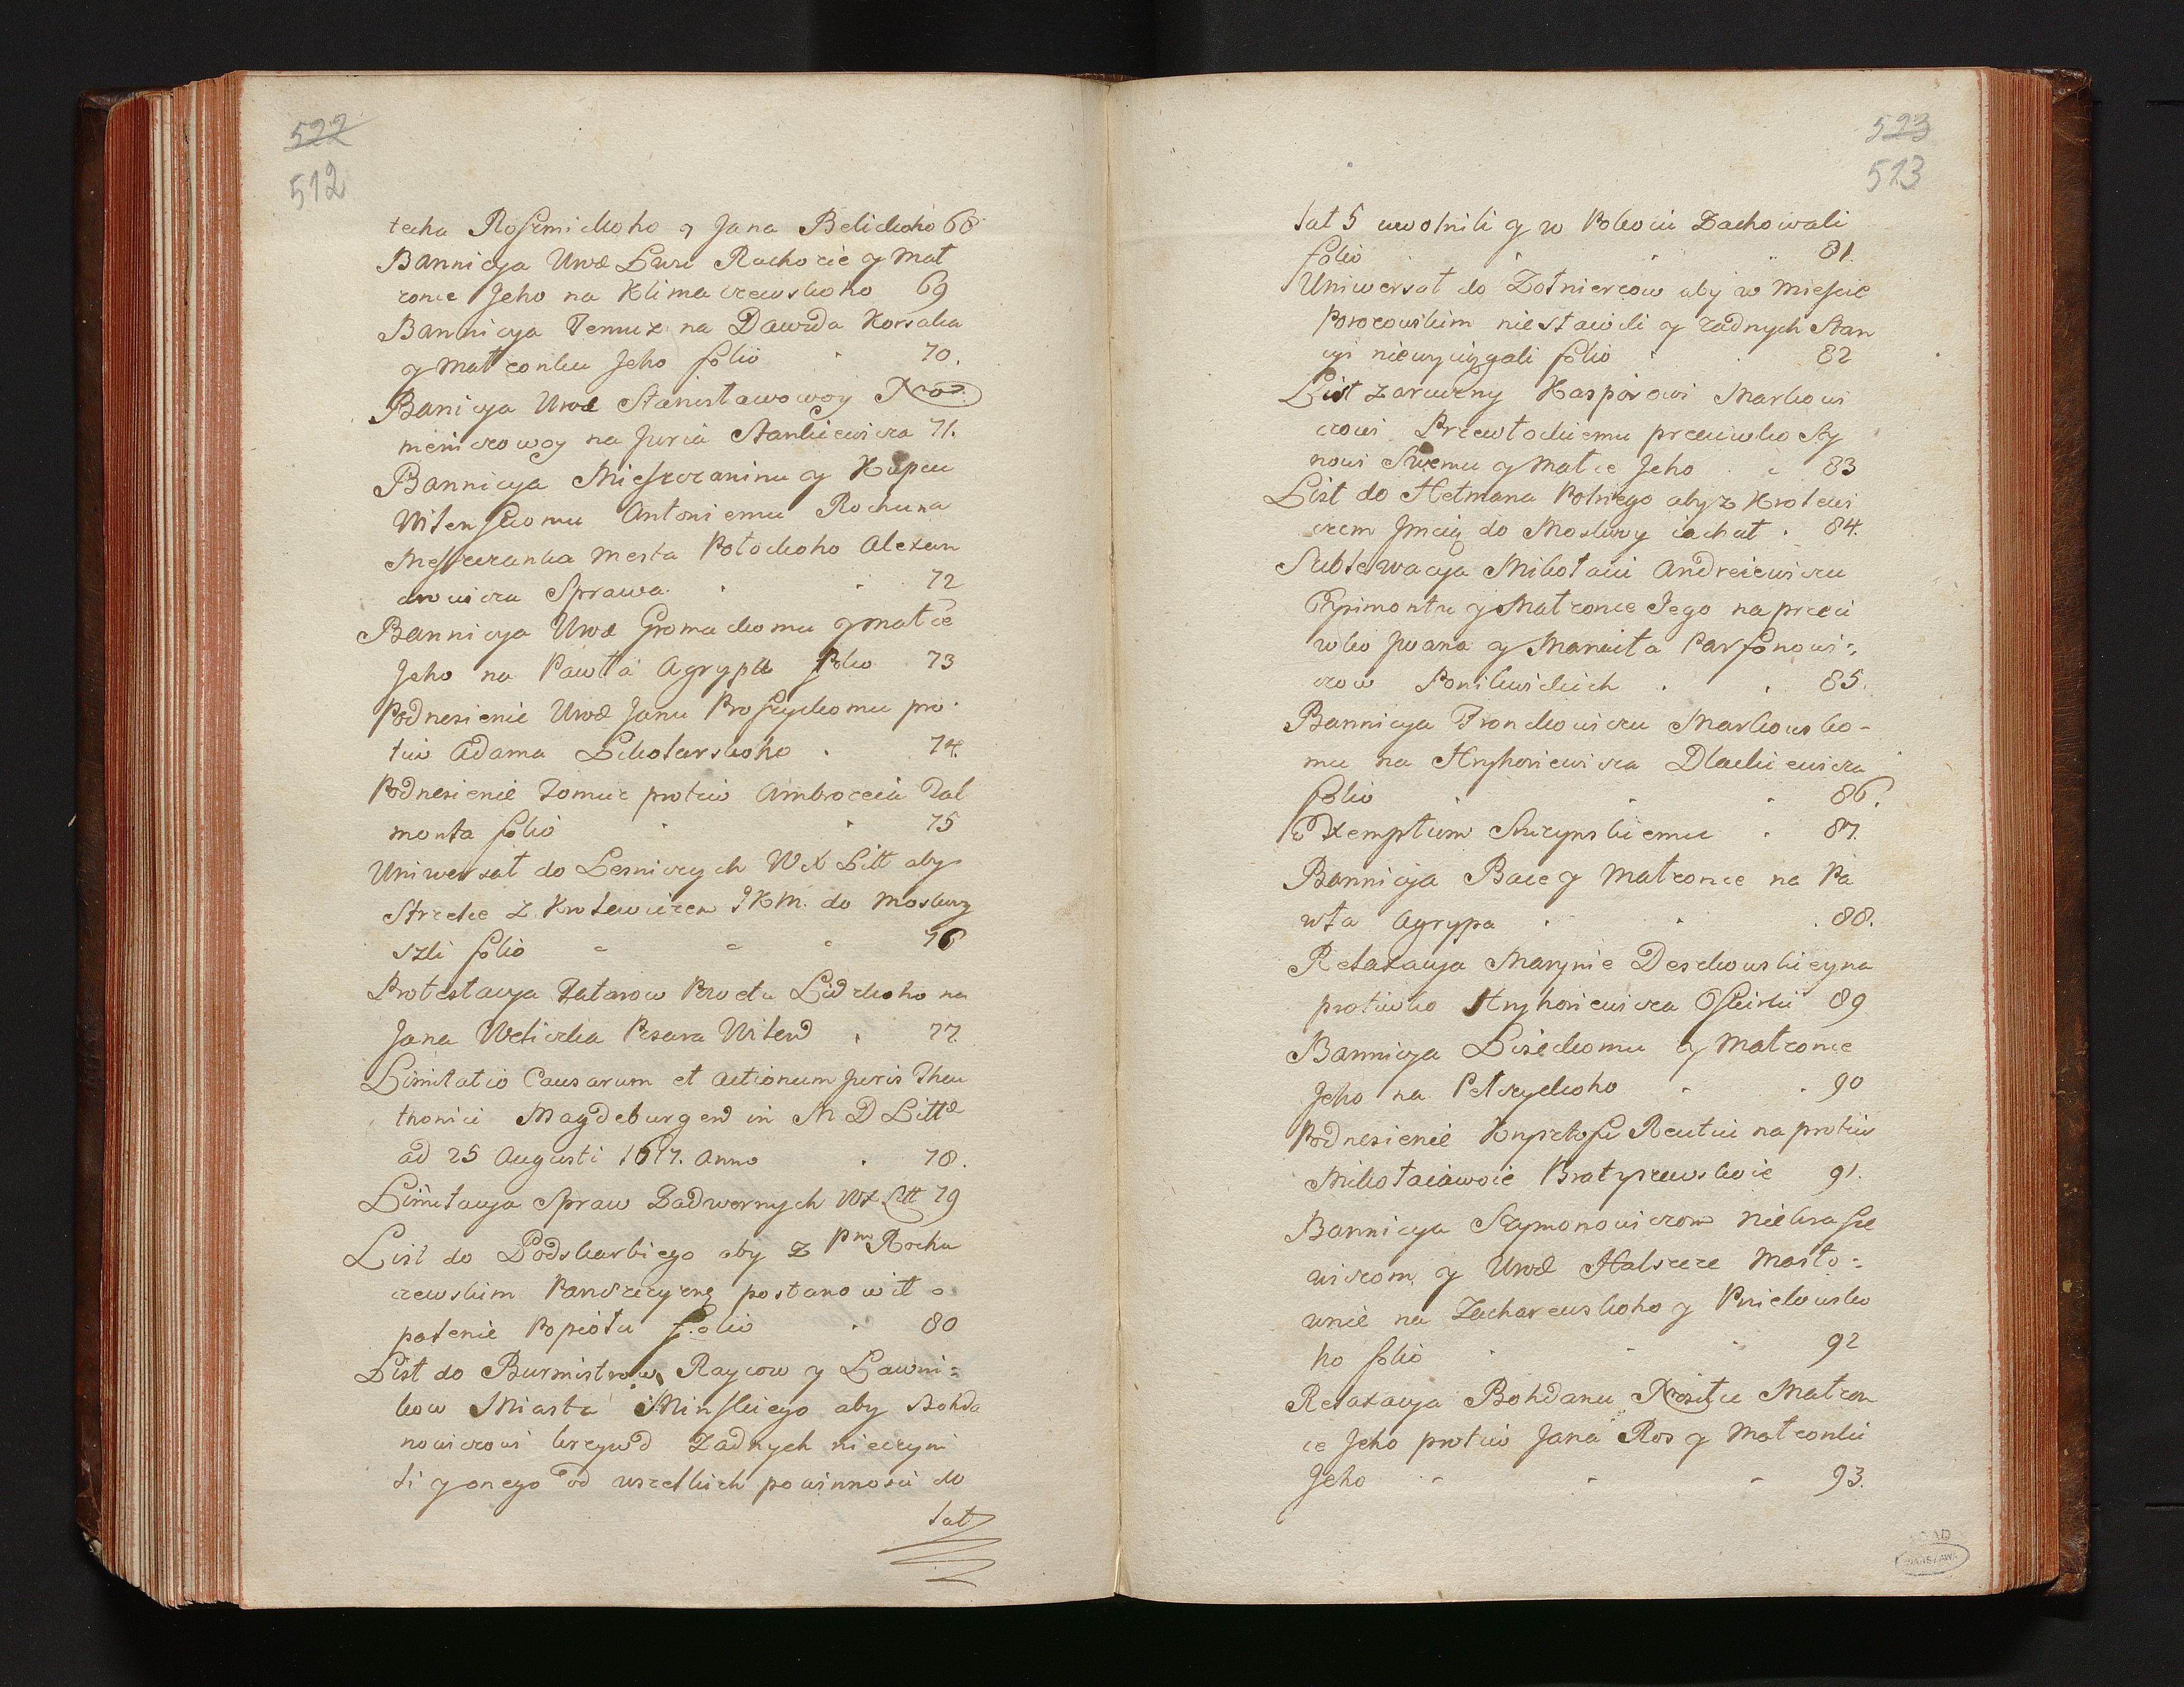 522
512
techa Rossemickoho y Jana Belickoho 68
Bannicya Urod Lwu Rachozie y Mał
zonce Jeho na Klimaczewskoho 69
Bannicya Temuz na Dawida Korsaka
y Małzonku Jeho folio 70.
Banicya Urod Stanisławowoy
mieniczowoy na Juria Stankiewicza 71.
Bannicya Mieszczaninu y Kupcu
Witenskomu Antoniemu Rochuna
Meszczanka Mesta Połockoho Alexan
drowicza Sprawa 72
Bannicya Urod Gromackomu y małce
Jeho na Pawła Agrypu folio 73
Podnesienie Urod Janu Proszyckomu pro
tiw Adama Szkolarskoho 74.
Podnesienie Tomuz protiw Ambrozeia Dal
monta folio 75
Uniwersał do Lesniczych W X Litt aby
Strzelce z Krolewicem JKM. do Moskwy
szli folio 76
Protestacya Tatarow Powetu Lidzkoho na
Jana Weliczka Pisara Wilend 77.
Limitatio Causarum et Actionum Juris Theu
thonici Magdeburgen in M D Littd
ad 25 Augusti 1617. Anno 78.
Limitacya Spraw Zadwornych WX Litt 79
List do Podskarbiego aby z Pm Rochu
czewskim Panszczyznę postanowił o
palenie Popiołu folio 80
List do Burmistrzow, Raycow y Ławni=
kow Miasta Minskiego aby Bohda
nowiczowi krzywd Zadnych nieczyni
li y onego od wszelkich powinnosci do
lat
523
513
lat 5 uwolnili y w Pokoiu Zachowali
folio 81.
Uniwersał do Zołnierzow aby w Mieście
Porozowskim nie Stawali y zadnych Stan
cyi niewyciągali folio 82
List zaruczny Kasporowi Markowi
czowi Przewłockiemu przeciwko Sy
nowi Swemu y Matce Jeho 83
List do Hetmana Polnego aby z Krolewi
czem Jmcią do Moskwy iachał 84.
Sublewacya Mikołaiu Andreiewiczu
Gzimontu y Małzonce Jego na przeci
wko Jwana y Manuiła Parfenowi=
czow Ponikwickich 85.
Bannicya Fronckowiczu Markowsko-
mu na Hryhoriewicza Dlackiewicza
folio 86.
Exemptum Suczynskiemu 87.
Bannicya Bace y Małzonce na Pa
wła Agrypa 88.
Relaxacya Marynie Deszkowskiey na
protiwko Hryhoriewicza Oskirki 89
Bannicya Lisieckomu y Małzonce
Jeho na Petryckoho 90
Podnesienie Krysztofu Reutu na protiw
Mikołaiawoie Bratyszewskoie 91.
Bannicya Szymonowiczom Niekrasze
wiczom y Urod Halszce Masło=
wnie na Zacharewskoho y Knielowsko
ho folio 92
Relaxacya Bohdanu Małzon
ce Jeho protiw Jana Ros y Małzonki
Jeho 93.
AGAD
WARSZAWA